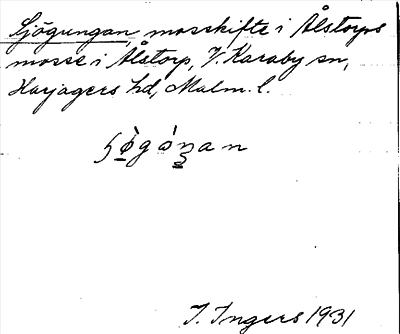 Sjögungan, mosskifte i Ålstorps
mosse i Ålstorp, V. Karaby sn,
Harjagers hd, Malm. l.
I. Ingers 1931